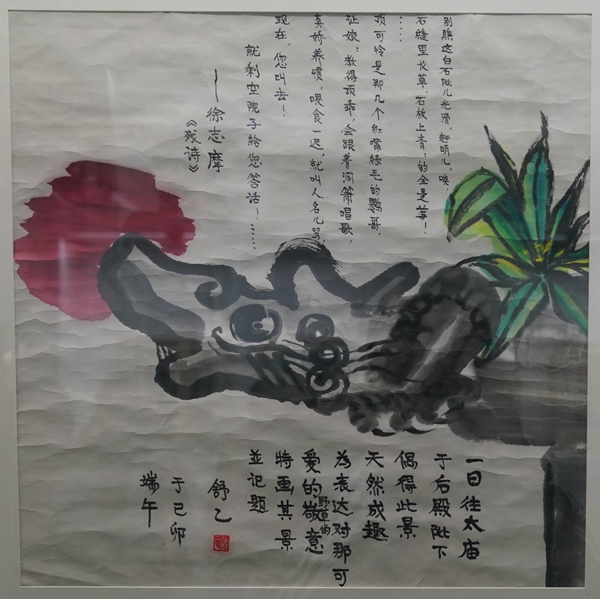 别瞧这白石阶儿光滑,赶明儿,唉,
石缝里长草,石板上青:的全是莓!
……
顶可怜是那几个红嘴绿毛的鹦哥,
让娘:教得顶乖,会跟着洞箫唱歌,
真娇养惯,喂食一迟,就叫人名儿骂,
现在,您叫去!
就剩空院子给您答话!……
—徐志摩
《残诗》
一日往太庙
于后殿陛下
偶得此景
天然成趣
為表达对那可
爱的野草的敬意
特画其景
並记题
舒乙
于己卯
端午